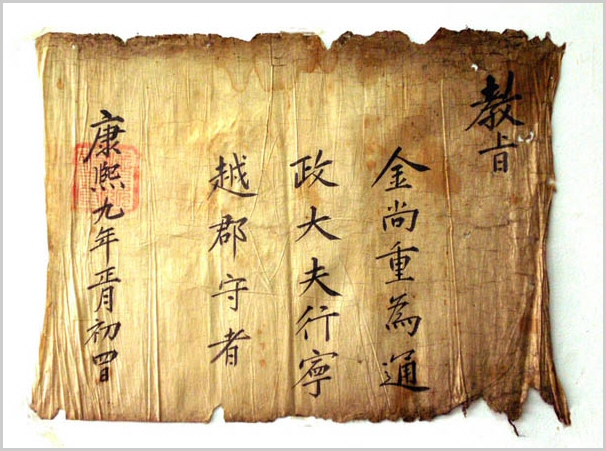 教旨
金尚重為通
政大夫行寧
越郡守者
康熙九年正月初四日